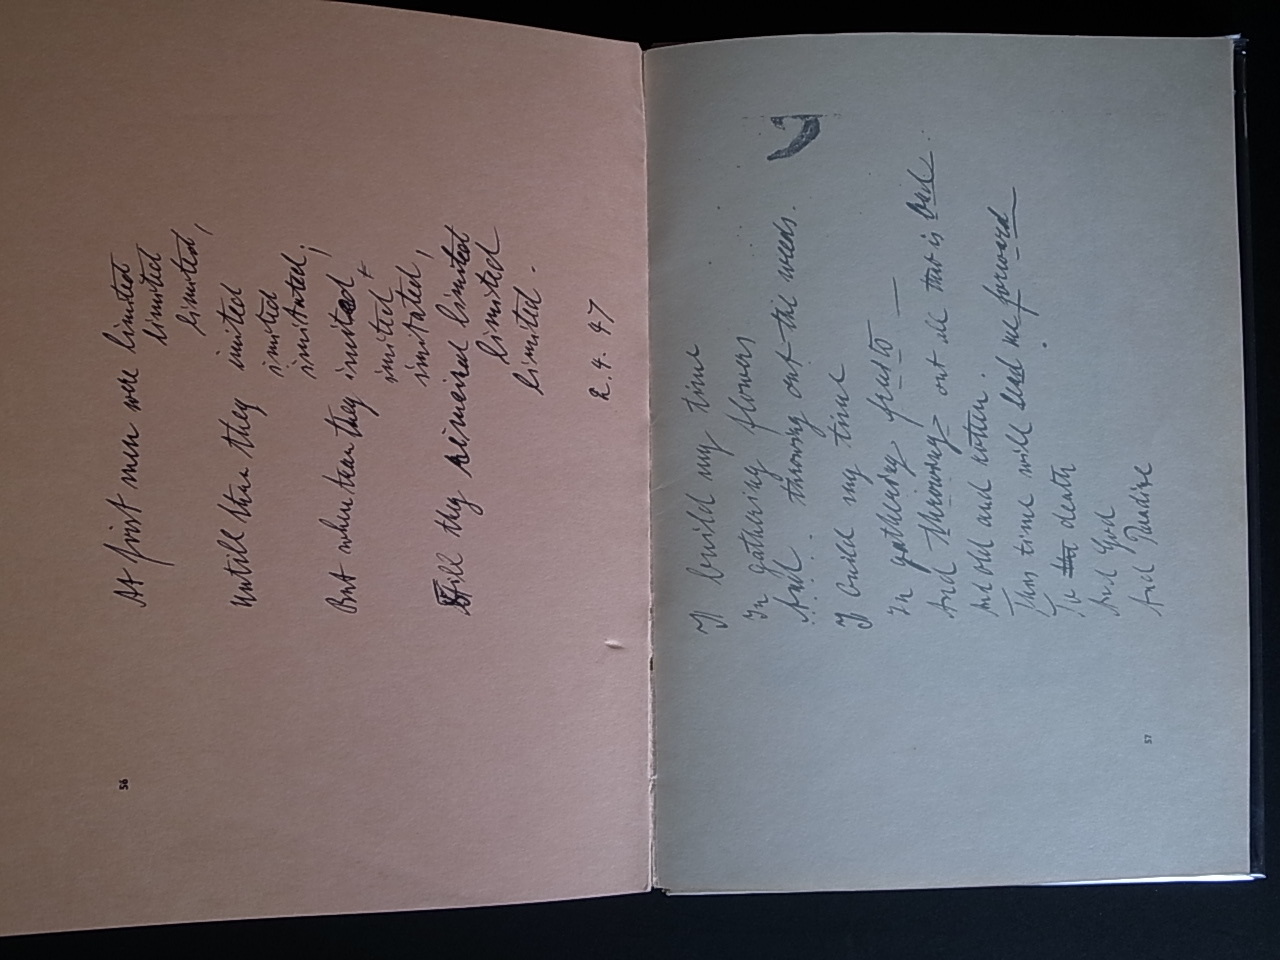 At first men were limited
limited
limited,
Untill then they imited
imited
imitated;
But when then they imited
imited +
imitated,
Still they remained limited
limited
limited.
2.4.47
56
I build my time
In gathering flowers
And throwing out the weeds.
I build my time
In gathering fruits —
And throwing out all that is bad
and old and rotten.
This time will lead me forward
To the death
And God
And Paradise
57